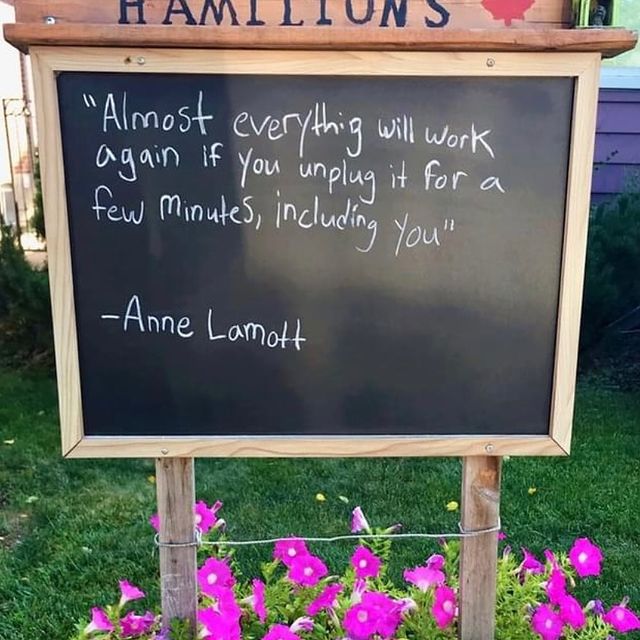 HAMILTON'S
"Almost everything will work
again if you unplug it for a
few minutes, including you"
-Anne Lamott